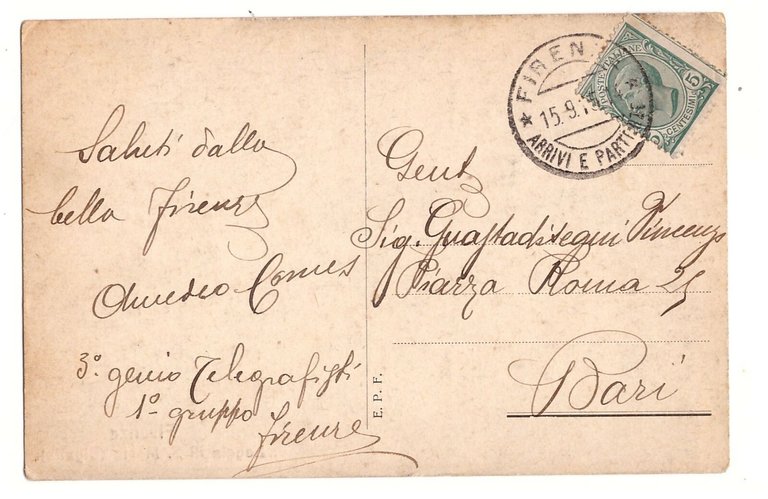 Saluti dalla
bella Firenze
Amedeo Comes
3º genio Telegrafisti
1º gruppo
Firenze
E. P. F.
FIRENZE
15.9.1
ARRIVI E PARTENZE
POSTE ITALIANE
CENTESIMI 5
Gent
Sig. Guastadisegni Vincenzo
Piazza Roma 25
Bari